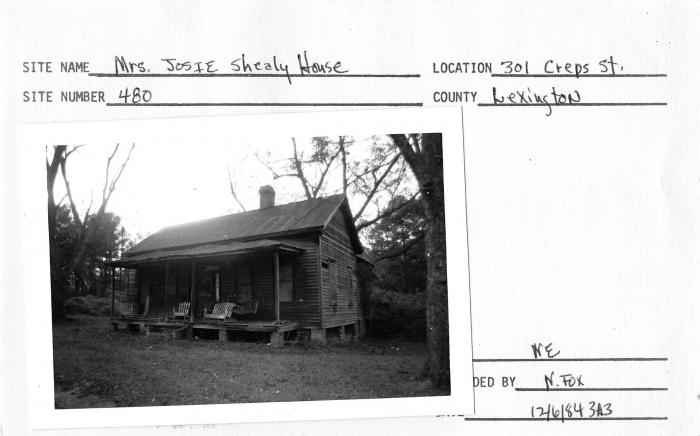 SITE NAME Mrs. Josie Shealy House
LOCATION 301 Creps St.
SITE NUMBER 480
COUNTY Lexington
NE
DED BY N. Fox
12/6/84 3A3